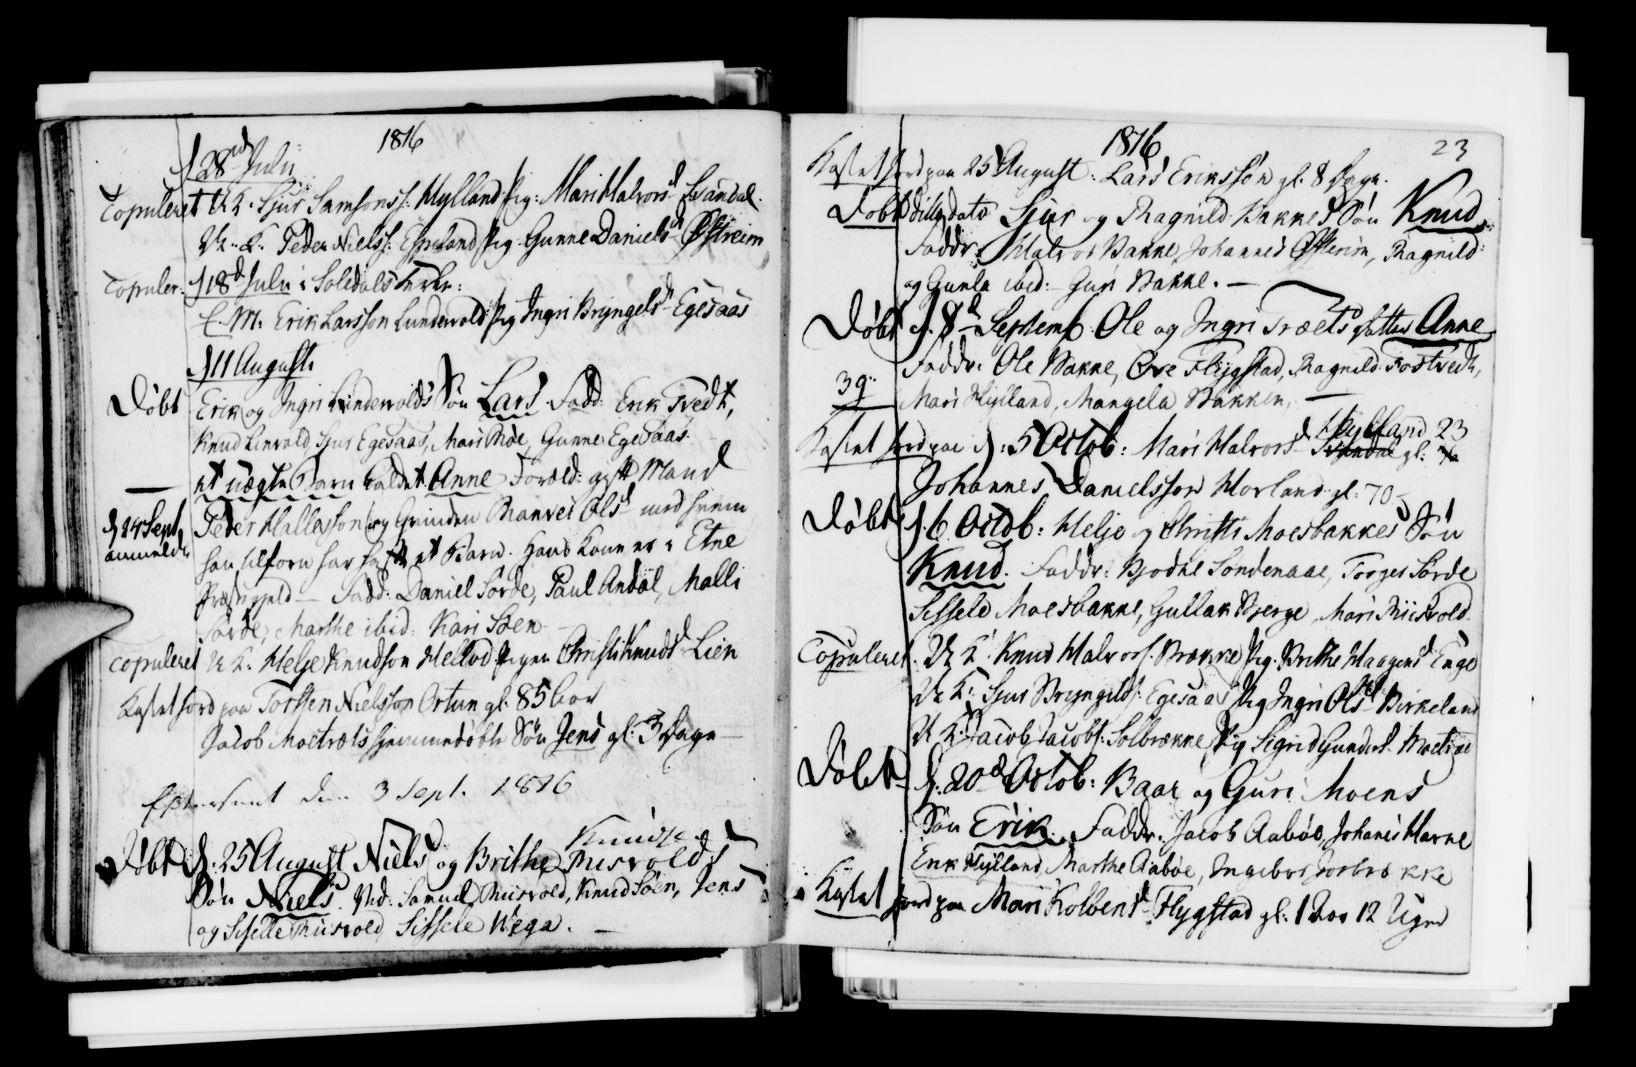 1816
d 28de Julii
Copuleret U. K. Sjur Samsons: Hylland Pig: Mari Halvorsd Svandal.
U. K. Peder Niels: Espeland Pig: Gunne Danielsd Østreim
Copuler: d 18d Julii i Soledals Kirke:
E. M. Erik Larsson Lundevold Pig Ingri Bryngelsd Egesaas
d 11 August:
Døbt Erik og Ingri Lindevolds Søn Lars. Fadd: Erik Tvedt,
Knud Linvold, Sjur Egesaas, Mari Gunne Egesaas.
— et uægte Barn kaldet Anne Foræld: gift Mand
d 24 Sept anmeldt Peder Hallasson og Qvinden Olsd med hvem
han tilforn har havt et Barn. Hans Kone er i Etne
Præstegjeld — Fadd: Daniel Sørde, Paul Andal, Malli
Sørde, Marthe ibid: Kari Søen
Copuleret U. K. Helje Knudson Hellad Pigen Christi Knudsd Lien
Kastet Jord paa Torsten Nielsson Ørtun gl. 85 Aar
Jacob Moetræts hjemmedøbte Søn Jens gl: 3 Dage
Efterseet den 3 Sept. 1816
Knud
Døbt d. 25 August Niels og Brithe Riisvolds
Søn Niels. Vid: Samuel Riisvold, Knud Søen, Jens
og Sissele Riisvold Sissele Hega. —
1816
23
Kastet Jord paa 25 August: Lars Eriksson gl. 8 Dage.
Døbt dito dato Sjur og Ragnild Bakkes Søn Knud.
Faddr: Halvor Bakke, Johannes Østreim, Ragnild
og Gunla ibid: Guri Bakke. —
Døbt d. 8d Septemb Ole og Ingri Træets Datter Anne
Faddr. Ole Bakke, Ove Flygstad, Ragnild Fostvedt,
39. Mari Hylland, Mangela Bakken, —
Hylland 23
Kastet Jord paa d: 5 Octob: Mari Halvorsd Svandal gl:
Johannes Danielsson Horland gl: 70 —
Døbt d. 6 Octob: Helje og Christi Moesbakkes Søn
Knud. Faddr: Bjodne Søndenaae, Torger Sørde
Sissele Moesbakke, Gullak Bjerge, Mari Riisvold
Copuleret. U. K: Knud Halvors. Brække Pig. Brithe Haagensd Enge
U. K: Sjur Bryngels: Egesaas Pig Ingri Olsd Birkeland
U. K: Jacob Jacobs: Solbrække Pig Sigrid Gundersd Moetræ
Døbt d. 20d Octob: Baar og Guri Moens
Søn Erik. Faddr. Jacob Aabøe, Johanes Havne
Erik Hylland, Marthe Aabøe, Ingebor Jorbrække
Kastet Jord paa Mari Kolbensd Flygstad gl. 1 Aar 12 Uger